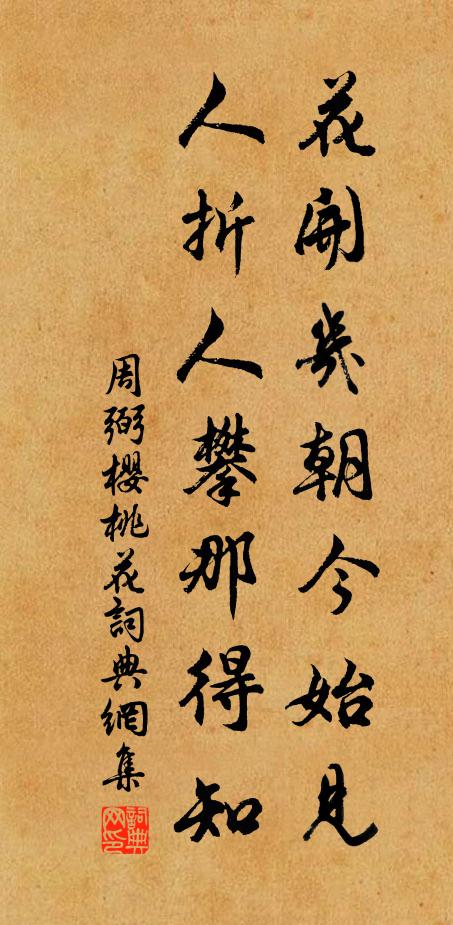 花開幾朝今始見
人折人攀那得知
周弼櫻桃花詞典網集
詞典网印